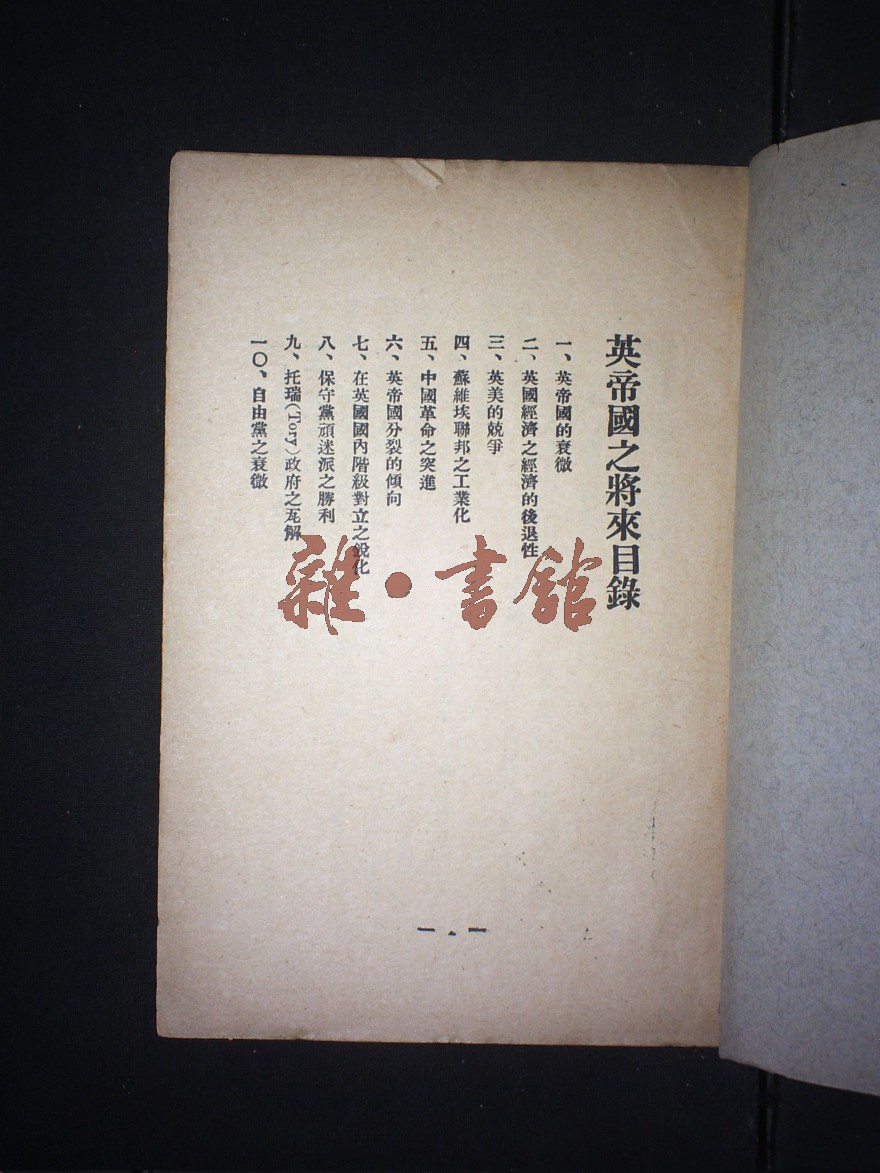 英帝國之將來目錄
一、英帝國的衰微
二、英國經濟之經濟的後退性
三、英美的競爭
四、蘇維埃聯邦之工業化
五、中國革命之突進
六、英帝國分裂的傾向
七、在英國國內階級對立之銳化
八、保守黨頑迷派之勝利
九、托瑞(Tory)政府之瓦解
一〇、自由黨之衰微
雜·書館
— 1 —